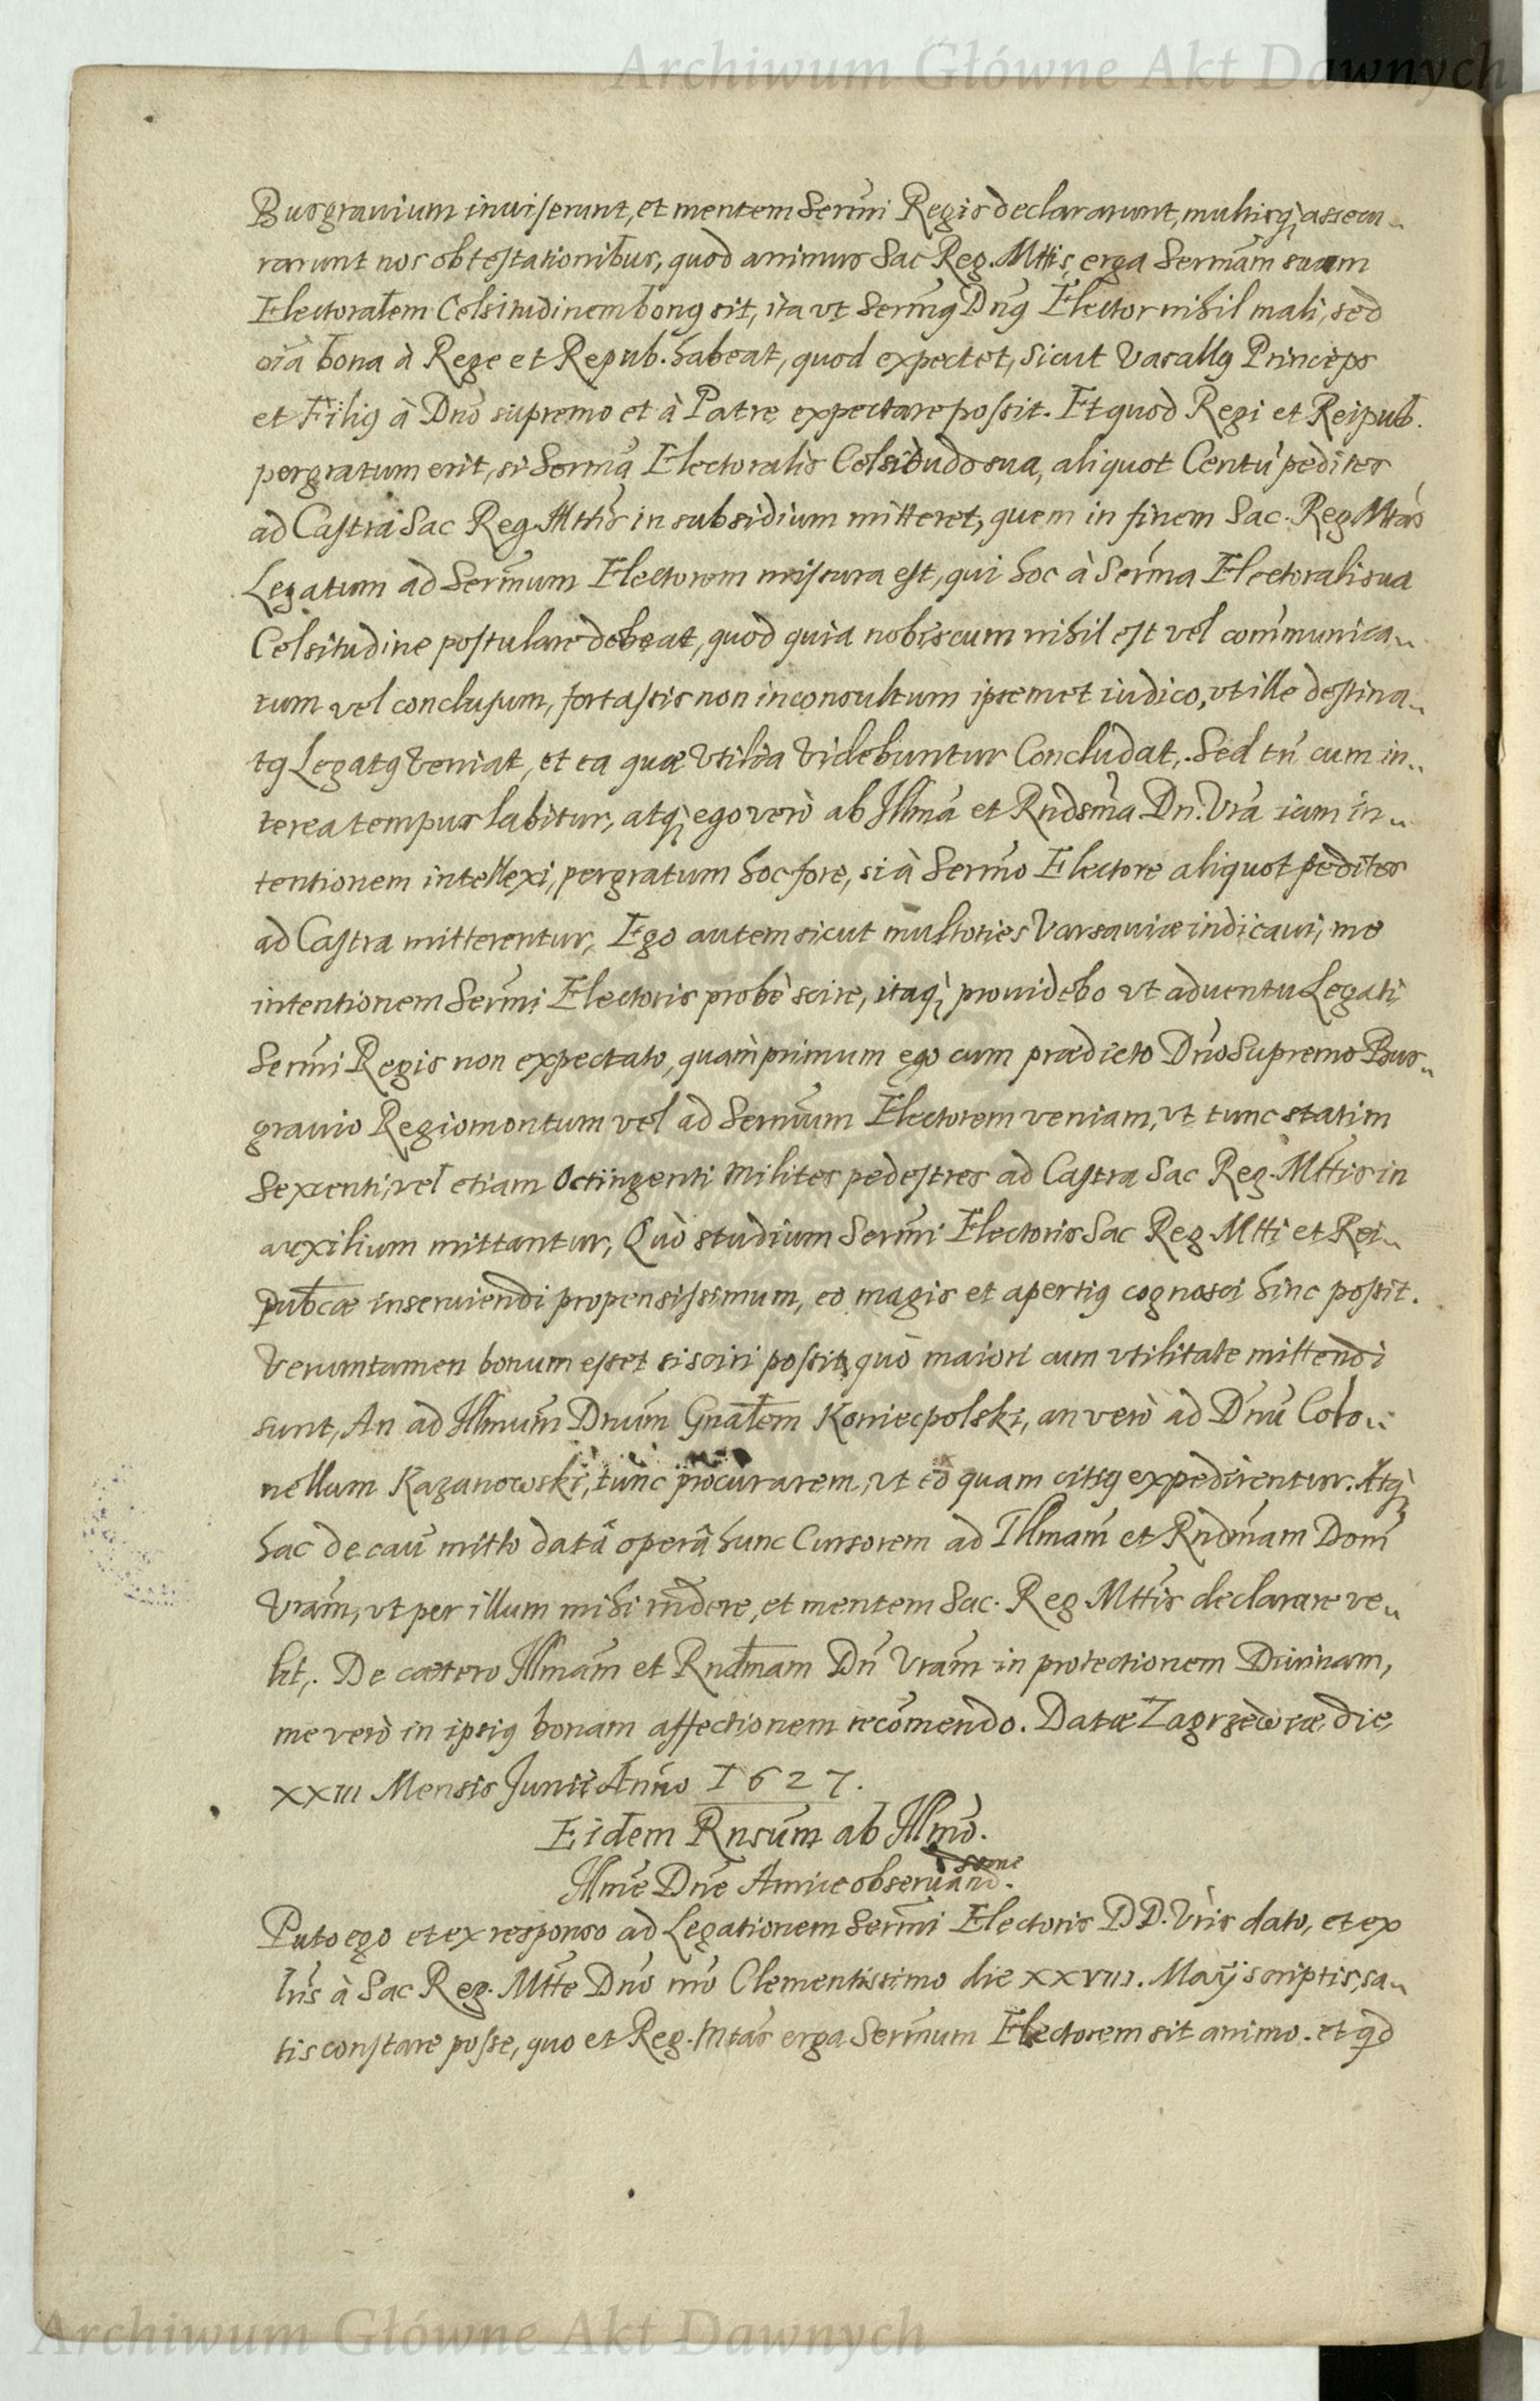 Archiwum Główne Akt Dawnych
Burgrauium inuiserunt, et mentem Sermi Regis declararunt, multisq; assecu-
rarunt nos obtestationibus, quod animus Sac Reg. Mttis erga Sermam suam
Electoralem Celsitudinem bonꝯ sit, ita vt Sermꝯ Dnꝯ Elector nihil mali, sed
oīa bona à Rege et Repub. habeat, quod expectet, sicut Vasallꝯ Princeps
et Filiꝯ à Dno supremo et à Patre expectare possit. Et quod Regi et Reipub.
pergratum erit, si Serma Electoralis Celsitudo sua, aliquot Centū pedites
ad Castra Sac Reg. Mttis in subsidium mitteret, quem in finem Sac. Reg Mtas
Legatum ad Sermum Electorem missura est, qui hoc à Serma Electorali sua
Celsitudine postulare debeat, quod quia nobiscum nihil est vel communica-
tum vel conclusum, fortassis non inconsultum ipsemet iudico, vt ille destina-
tꝯ Legatꝯ veniat, et ea quæ vtilia videbuntur Concludat. Sed tn̄ cum in-
terea tempus labitur, atq; ego verò ab Illma et Rndsma Dn. Vra iam in-
tentionem intellexi, pergratum hoc fore, si à Sermo Electore aliquot pedites
ad Castra mitterentur, Ego autem sicut multoties Varsauiæ indicaui, me
intentionem Sermi Electoris probè scire, itaq; prouidebo vt aduentu Legati
Sermi Regis non expectato, quamprimum ego cum prædicto Dno Supremo Bur-
grauio Regiomontum vel ad Sermum Electorem veniam, vt tunc statim
Sexcenti, vel etiam Octingenti Milites pedestres ad Castra Sac Reg. Mttis in
auxilium mittantur, Quò studium Sermi Electoris Sac Reg. Mtti et Rei-
Pubcæ inseruiendi propensissimum, eo magis et apertiꝯ cognosci hinc possit.
Veruntamen bonum esset si sciri possit, quò maiori cum vtilitate mittendi
sunt, An ad Illmum Dnum Gnalem Koniecpolski, an verò ad Dnū Colo-
nellum Kazanowski, tunc procurarem, vt eo quam citiꝯ expedirentur. Atq;
hac de cau mitto datâ operâ hunc Cursorem ad Illmam et Rndmam Dom
Vram, vt per illum mihi rndere, et mentem Sac. Reg Mttis declarare ve-
lit. De cætero Illmam et Rndmam Dn Vram in protectionem Diuinam,
me verò in ipsiꝯ bonam affectionem recomendo. Datæ Zagrzewiæ die
XXIII Mensis Junii Anno 1627.
Eidem Rnsum ab Illmo.
Illme Dne Amice obseruand.
Puto ego et ex responso ad Legationem Sermi Electoris D D. Vris dato, et ex
lris à Sac Reg. Mtte Dno mo Clementissimo die XXVIII. Maÿ scriptis, sa-
tis constare posse, quo et Reg. Mtas erga Sermum Electorem sit animo. et qd
Archiwum Główne Akt Dawnych